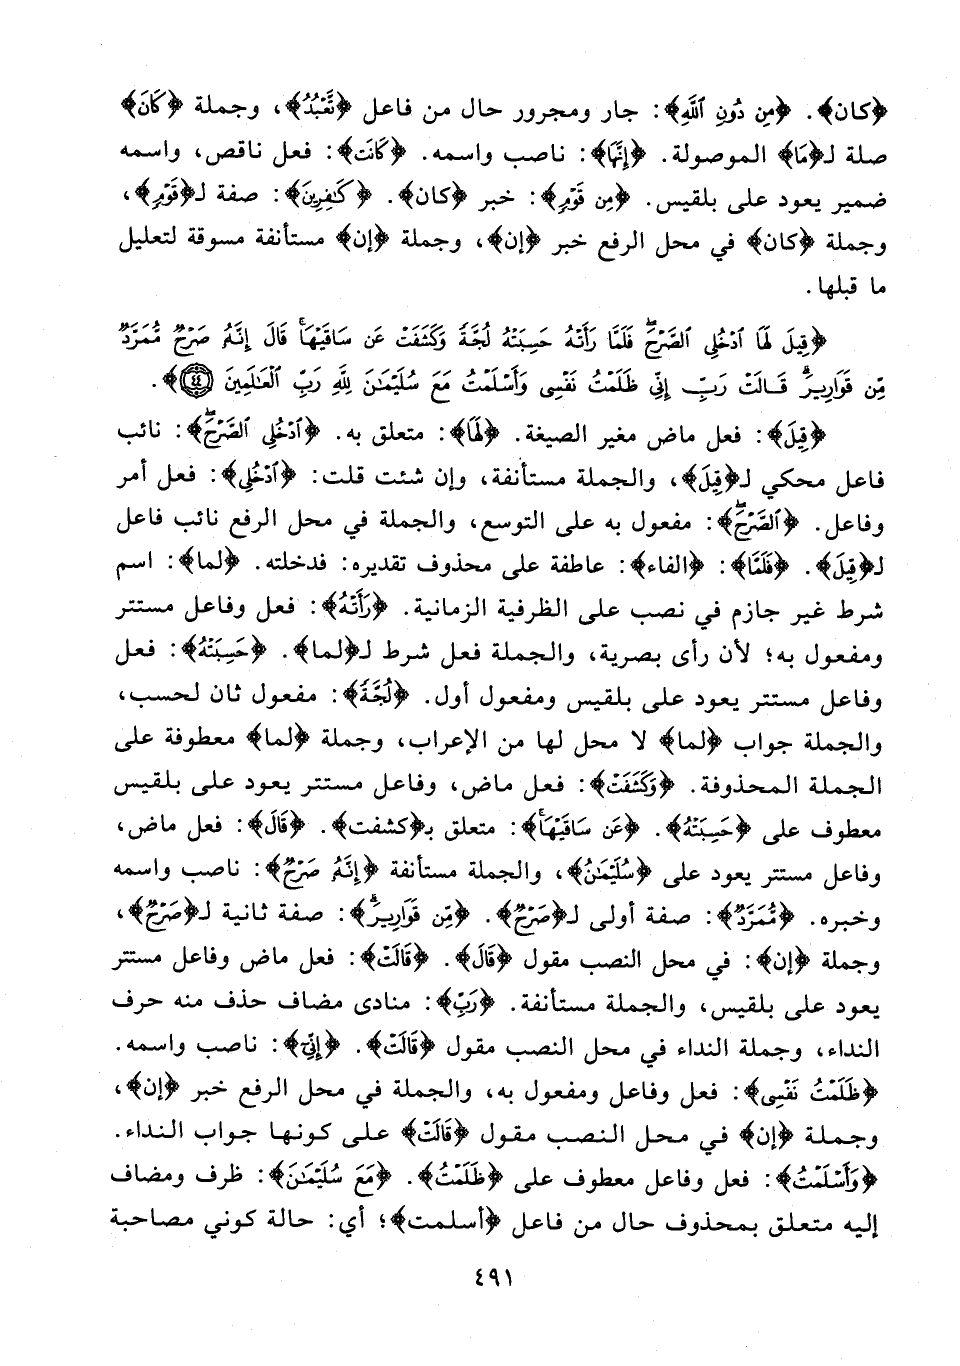 ﴿كان﴾. ﴿مِن دُونِ ٱللَّهِ﴾: جار ومجرور حال من فاعل ﴿تَّعْبُدُ﴾، وجملة ﴿كَانَ﴾
صلة لـ﴿مَا﴾ الموصولة. ﴿إِنَّهَا﴾: ناصب واسمه. ﴿كَانَتْ﴾: فعل ناقص، واسمه
ضمير يعود على بلقيس. ﴿مِن قَوْمٍ﴾: خبر ﴿كان﴾. ﴿كَٰفِرِينَ﴾: صفة لـ﴿قَوْمٍ﴾،
وجملة ﴿كان﴾ في محل الرفع خبر ﴿إن﴾، وجملة ﴿إن﴾ مستأنفة مسوقة لتعليل
ما قبلها.
﴿قِيلَ لَهَا ٱدْخُلِى ٱلصَّرْحَۖ فَلَمَّا رَأَتْهُ حَسِبَتْهُ لُجَّةً وَكَشَفَتْ عَن سَاقَيْهَاۚ قَالَ إِنَّهُۥ صَرْحٌ مُّمَرَّدٌ
مِّن قَوَارِيرَۗ قَالَتْ رَبِّ إِنِّى ظَلَمْتُ نَفْسِى وَأَسْلَمْتُ مَعَ سُلَيْمَٰنَ لِلَّهِ رَبِّ ٱلْعَٰلَمِينَ ٤٤﴾.
﴿قِيلَ﴾: فعل ماض مغير الصيغة. ﴿لَهَا﴾: متعلق به. ﴿ٱدْخُلِى ٱلصَّرْحَۖ﴾: نائب
فاعل محكي لـ﴿قِيلَ﴾، والجملة مستأنفة، وإن شئت قلت: ﴿ٱدْخُلِى﴾: فعل أمر
وفاعل. ﴿ٱلصَّرْحَۖ﴾: مفعول به على التوسع، والجملة في محل الرفع نائب فاعل
لـ﴿قِيلَ﴾. ﴿فَلَمَّا﴾: ﴿الفاء﴾: عاطفة على محذوف تقديره: فدخلته. ﴿لما﴾: اسم
شرط غير جازم في نصب على الظرفية الزمانية. ﴿رَأَتْهُ﴾: فعل وفاعل مستتر
ومفعول به؛ لأن رأى بصرية، والجملة فعل شرط لـ﴿لما﴾. ﴿حَسِبَتْهُ﴾: فعل
وفاعل مستتر يعود على بلقيس ومفعول أول. ﴿لُجَّةً﴾: مفعول ثان لحسب،
والجملة جواب ﴿لما﴾ لا محل لها من الإعراب، وجملة ﴿لما﴾ معطوفة على
الجملة المحذوفة. ﴿وَكَشَفَتْ﴾: فعل ماض، وفاعل مستتر يعود على بلقيس
معطوف على ﴿حَسِبَتْهُ﴾. ﴿عَن سَاقَيْهَاۚ﴾: متعلق بـ﴿كشفت﴾. ﴿قَالَ﴾: فعل ماض،
وفاعل مستتر يعود على ﴿سُلَيْمَٰنُ﴾، والجملة مستأنفة ﴿إِنَّهُۥ صَرْحٌ﴾: ناصب واسمه
وخبره. ﴿مُّمَرَّدٌ﴾: صفة أولى لـ﴿صَرْحٌ﴾. ﴿مِّن قَوَارِيرَۗ﴾: صفة ثانية لـ﴿صَرْحٌ﴾،
وجملة ﴿إن﴾: في محل النصب مقول ﴿قَالَ﴾. ﴿قَالَتْ﴾: فعل ماض وفاعل مستتر
يعود على بلقيس، والجملة مستأنفة. ﴿رَبِّ﴾: منادى مضاف حذف منه حرف
النداء، وجملة النداء في محل النصب مقول ﴿قَالَتْ﴾. ﴿إِنِّى﴾: ناصب واسمه.
﴿ظَلَمْتُ نَفْسِى﴾: فعل وفاعل ومفعول به، والجملة في محل الرفع خبر ﴿إن﴾،
وجملة ﴿إن﴾ في محل النصب مقول ﴿قَالَتْ﴾ على كونها جواب النداء.
﴿وَأَسْلَمْتُ﴾: فعل وفاعل معطوف على ﴿ظَلَمْتُ﴾. ﴿مَعَ سُلَيْمَٰنَ﴾: ظرف ومضاف
إليه متعلق بمحذوف حال من فاعل ﴿أسلمت﴾؛ أي: حالة كوني مصاحبة
٤٩١